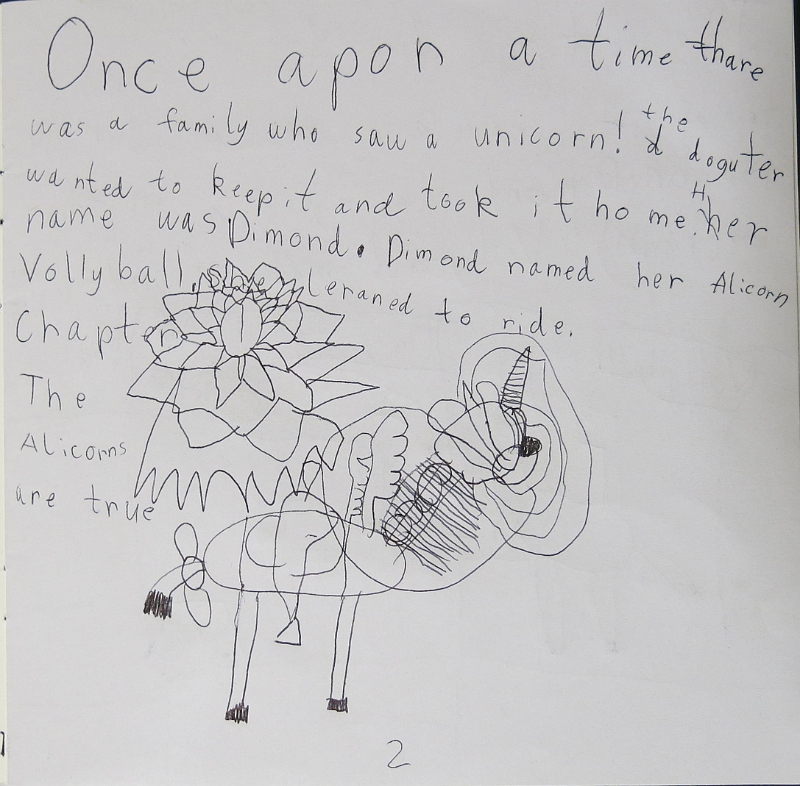 Once apon a time thare
was a family who saw a unicorn! the doguter
wanted to keep it and took it home. Her
name was Dimond. Dimond named her Alicorn
Vollyball. She leraned to ride.
Chapter
The
Alicorns
are true
2